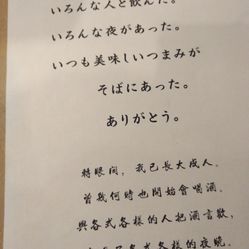 いろんな人と飲んだ。
いろんな夜があった。
いつも美味しいつまみが
そばにあった。
ありがとう。
轉眼間，我已長大成人。
曾幾何時也開始會喝酒。
與各式各樣的人把酒言歡，
各式各樣的夜晚。